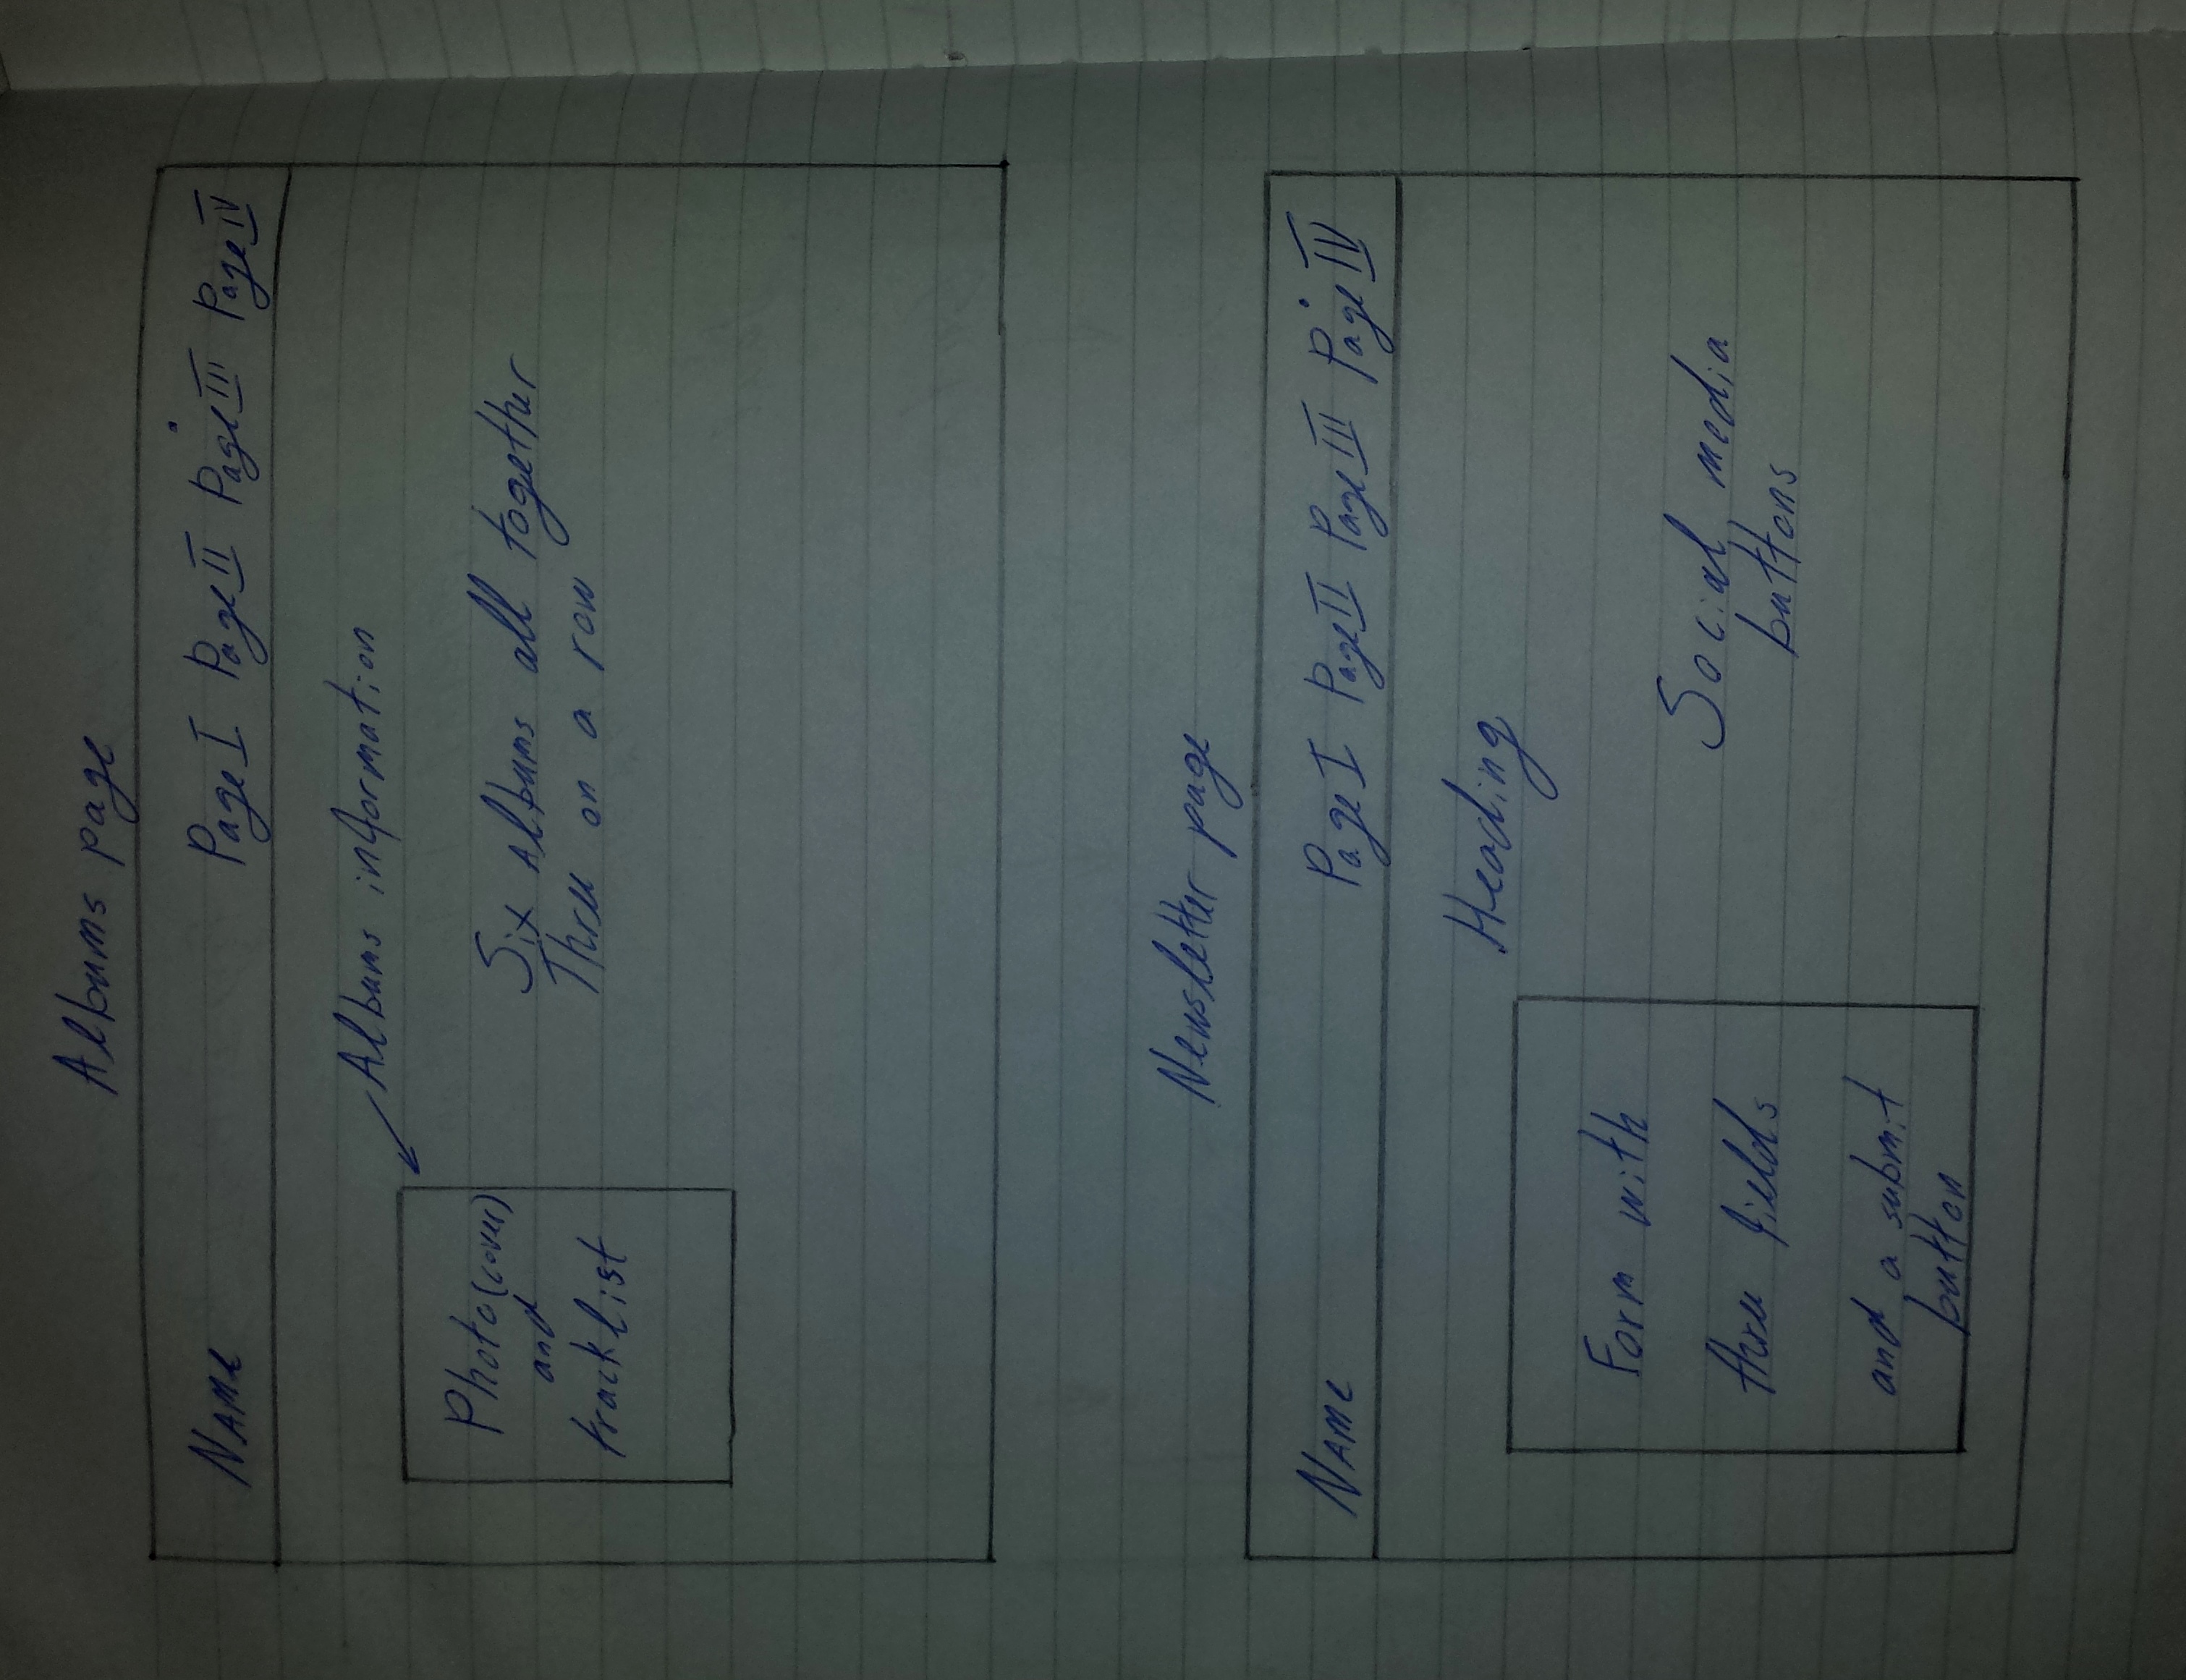 Albums page
Name Page I Page II Page III Page IV
Albums information
Photo (cover)
and
tracklist
Six Albums all together
Three on a row
Newsletter page
Name Page I Page II Page III Page IV
Heading
Form with
three fields
and a submit
button
Social media
buttons